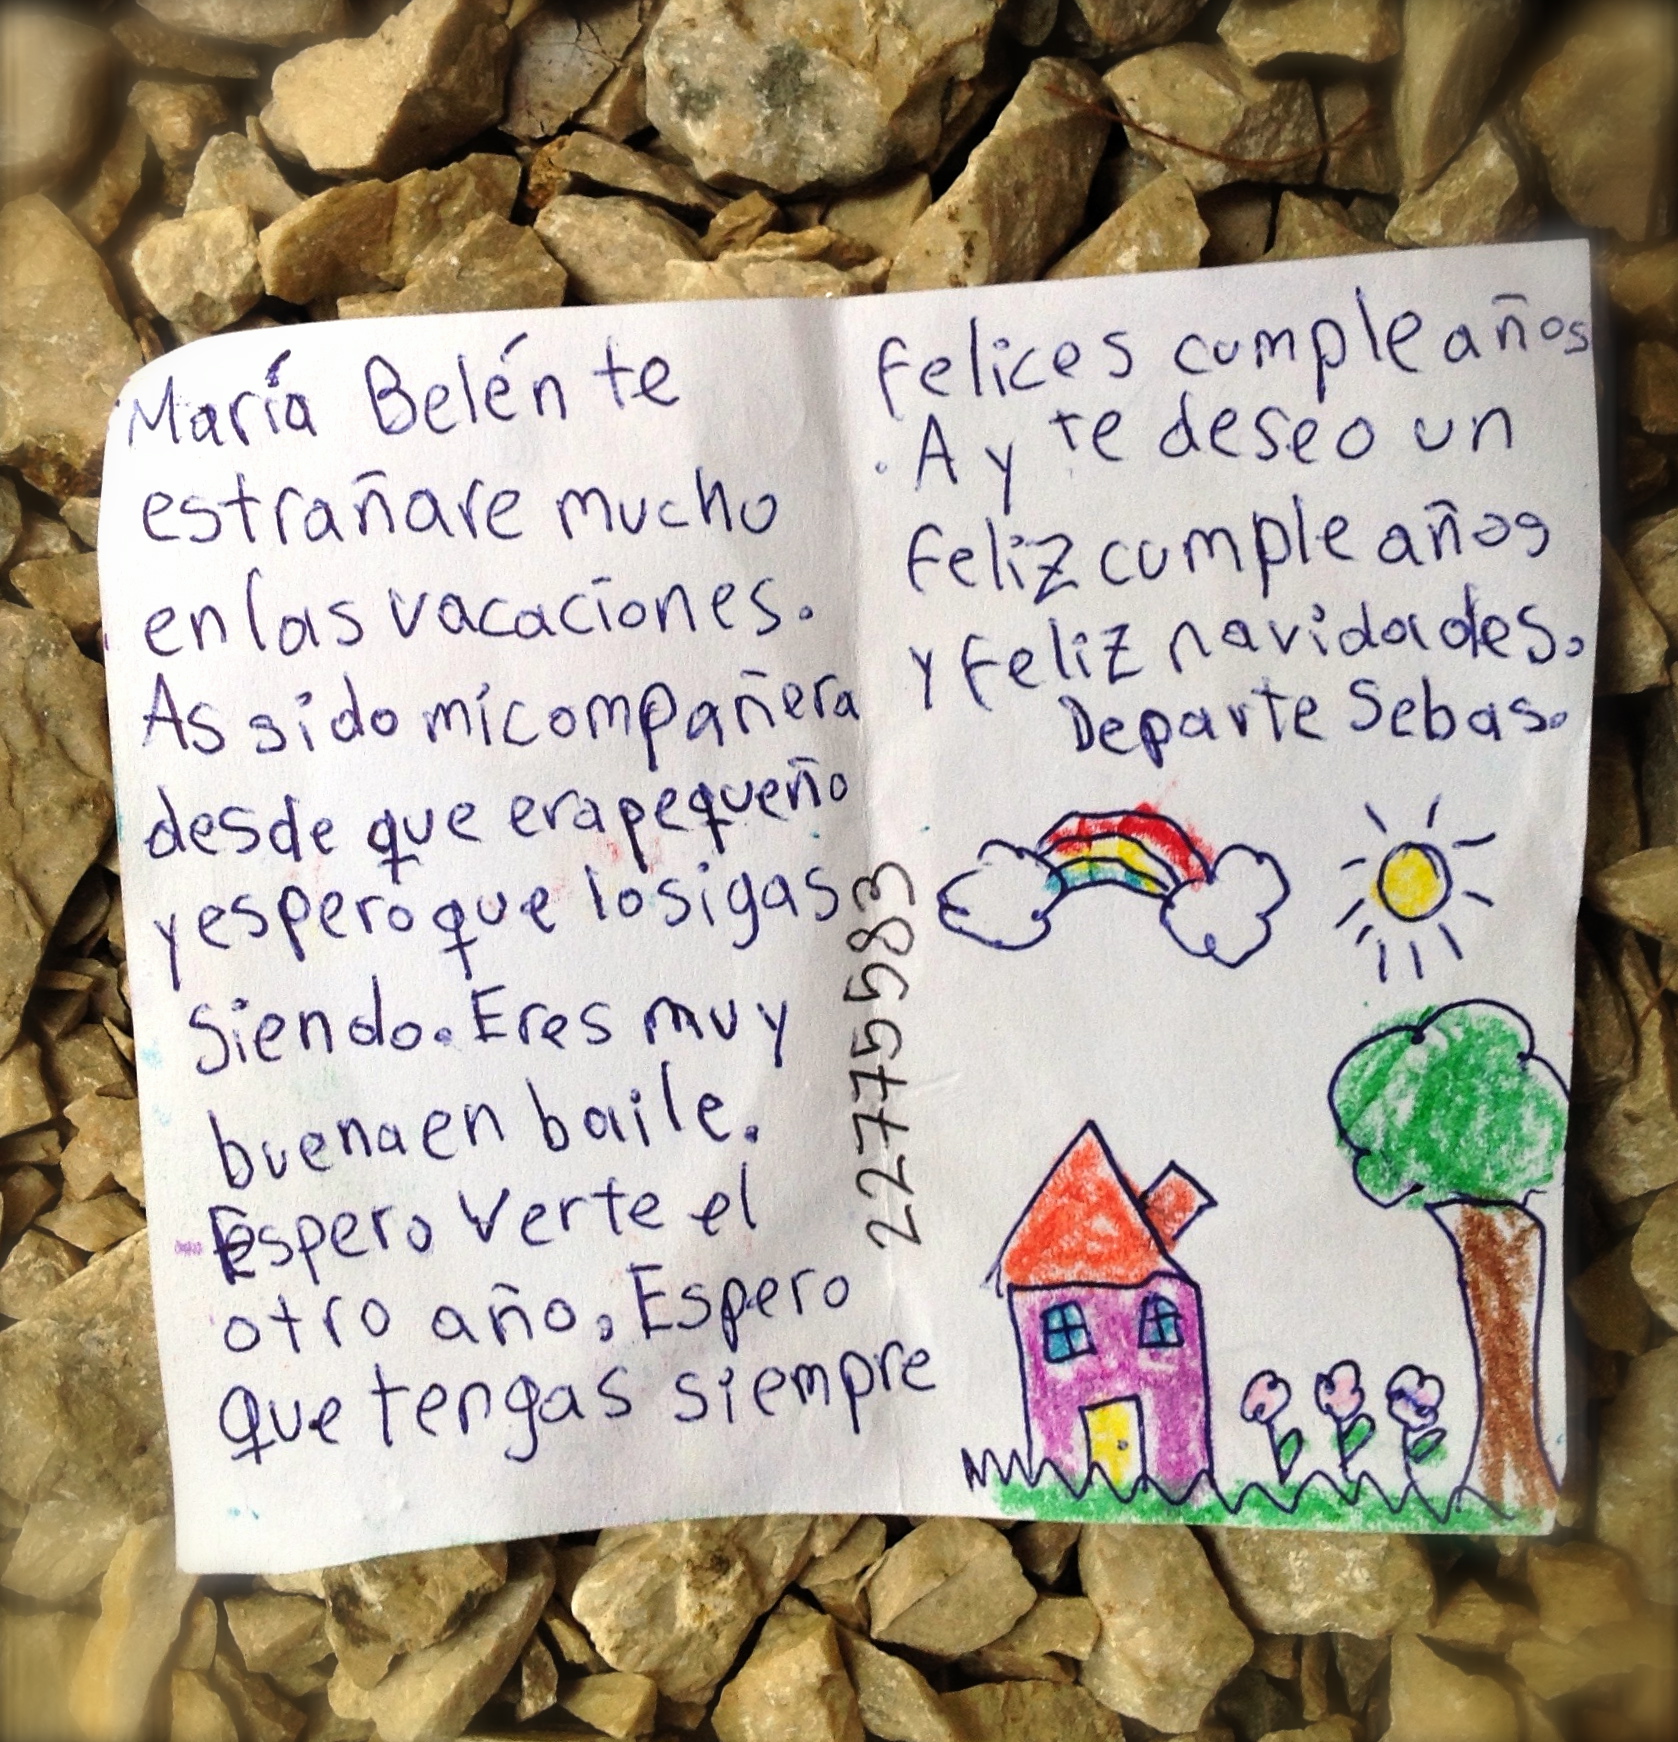 María Belén te
estrañare mucho
en las vacaciones.
As sido mi compañera
desde que era pequeño
y espero que lo sigas
siendo. Eres muy
buena en baile.
Espero verte el
otro año. Espero
que tengas siempre
felices cumpleaños
. A y te deseo un
feliz cumpleaños
y feliz navidades.
Departe Sebas.
22775583